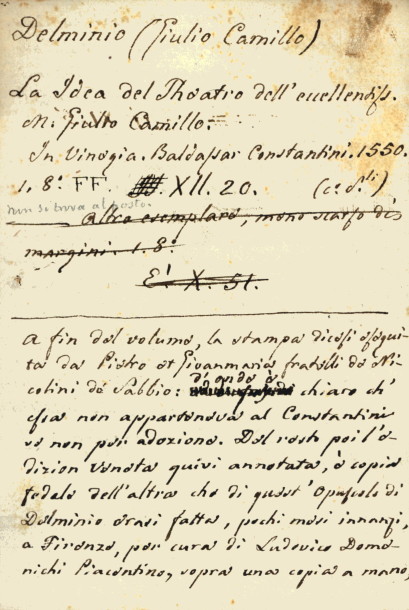 Delminio (Giulio Camillo)
La Idea del Theatro dell'eccellentiss.
M. Giulio Camillo.
In Vinegia. Baldassar Constantini. 1550.
1. 8.° FF. XII. 20. (c.s.)
non si trova al posto.
Altro esemplare, meno scarso di
margini. 1. 8.°
E' X. 51.
A fin del volume, la stampa dicesi esegui-
ta da Pietro et Gioanmaria fratelli de Ni-
colini de Sabbio: d'onde è chiaro ch'
essa non apparteneva al Constantini
se non per adozione. Del resto poi l'e-
dizion veneta quivi annotata, è copia
fedele dell'altra che di quest'Opuscolo di
Delminio erasi fatta, pochi mesi innanzi,
a Firenze, per cura di Ludovico Dome-
nichi Piacentino, sopra una copia a mano,